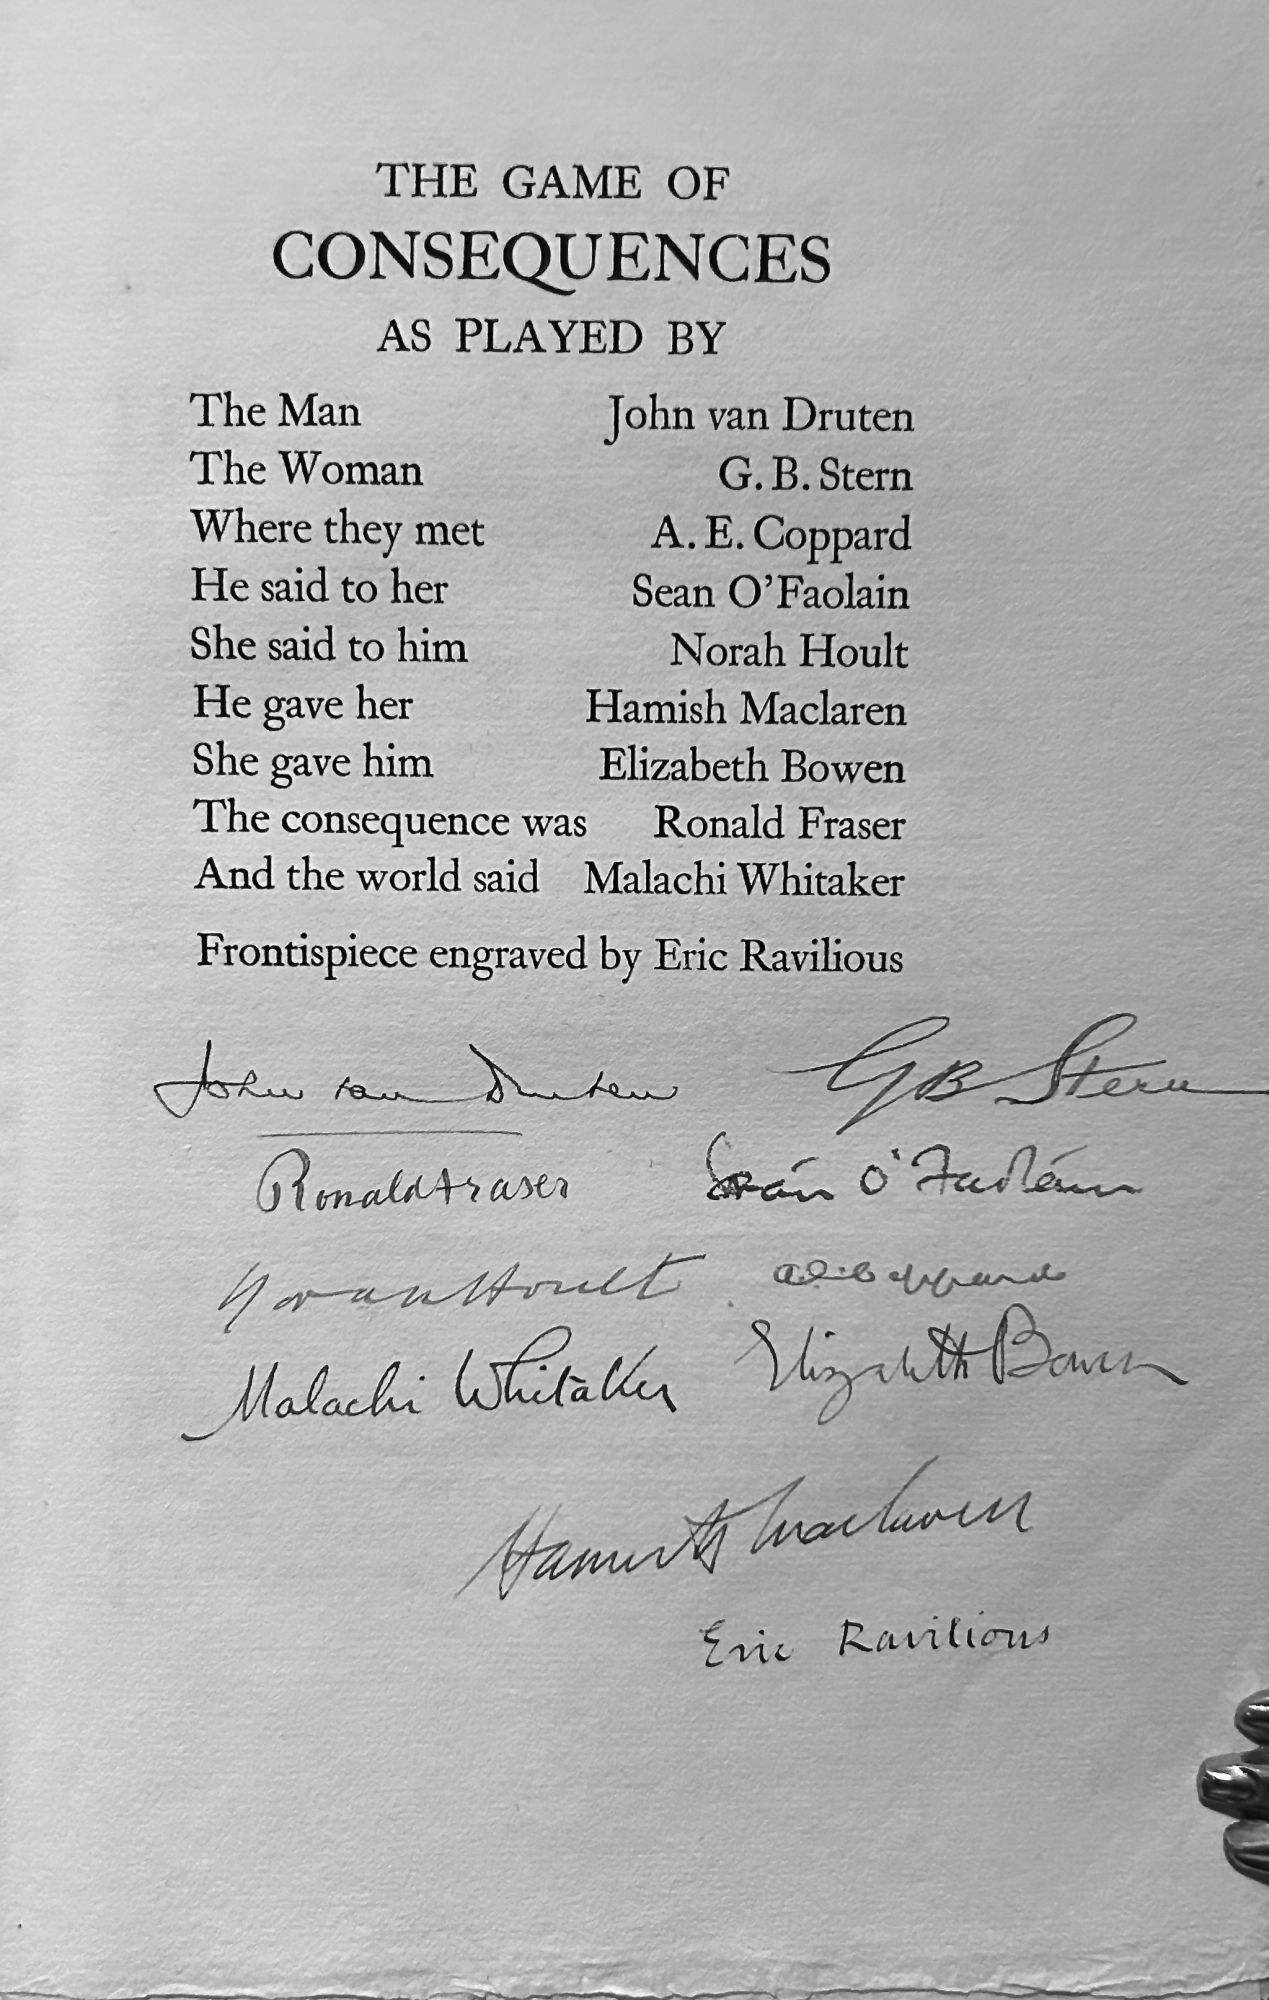 THE GAME OF
CONSEQUENCES
AS PLAYED BY
The Man John van Druten
The Woman G. B. Stern
Where they met A. E. Coppard
He said to her Sean O'Faolain
She said to him Norah Hoult
He gave her Hamish Maclaren
She gave him Elizabeth Bowen
The consequence was Ronald Fraser
And the world said Malachi Whitaker
Frontispiece engraved by Eric Ravilious
John van Druten GB Stern
Ronald Fraser Seán O'Faoláin
Norah Hoult A.E. Coppard
Malachi Whitaker Elizabeth Bowen
Hamish Maclaren
Eric Ravilious